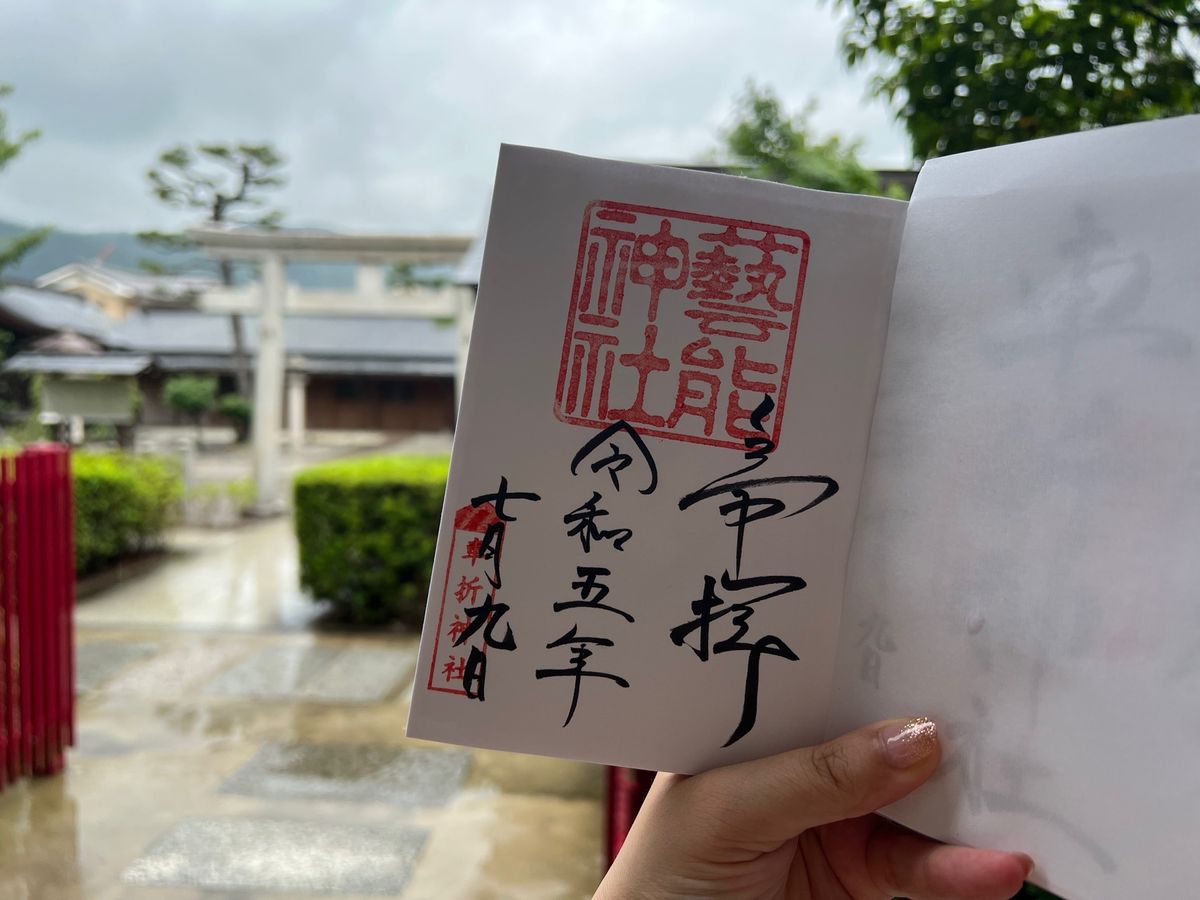 藝能
神社
奉拝
令和五年
七月九日
車折神社